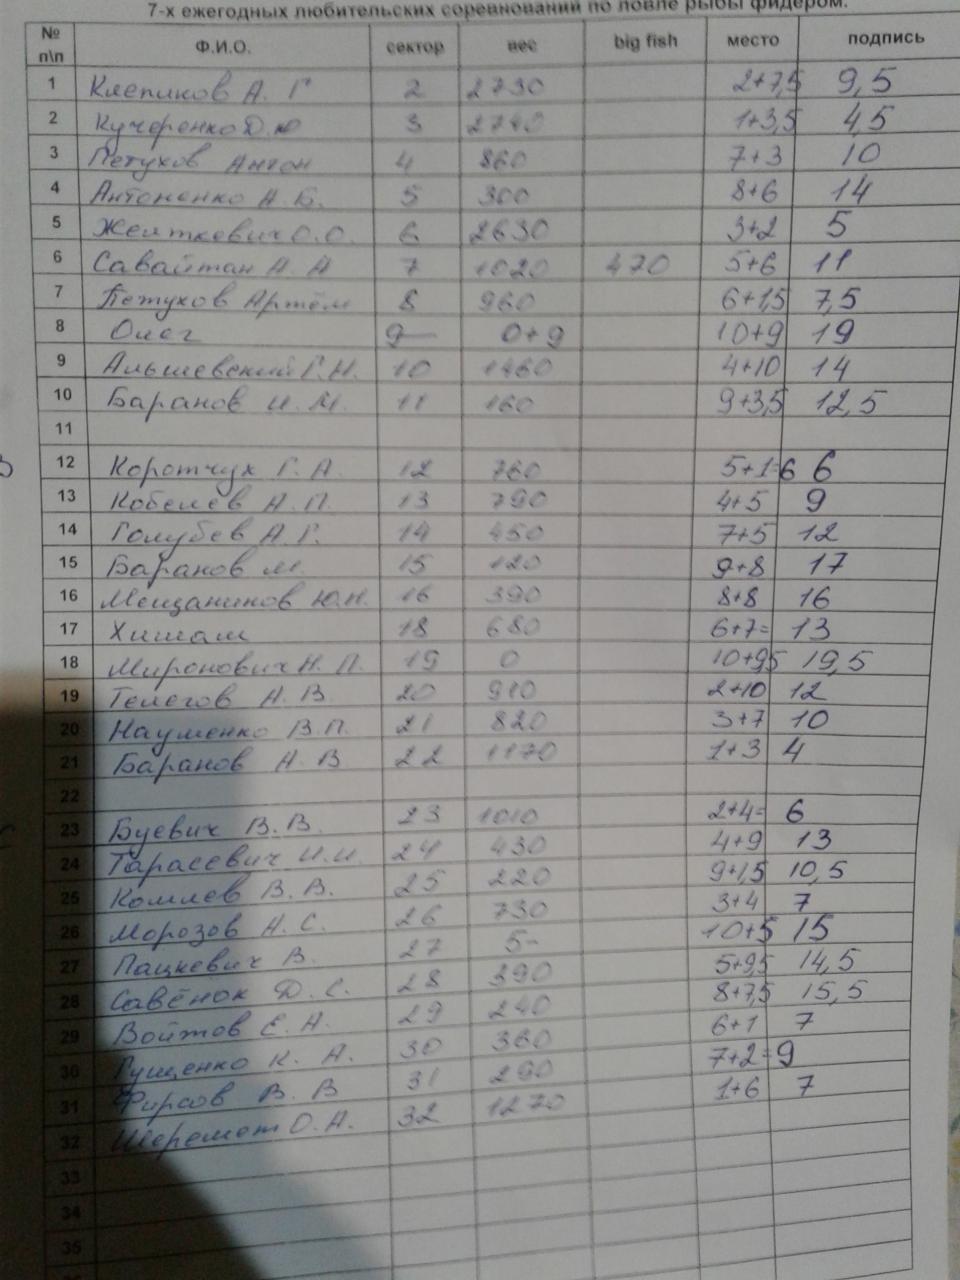 7-х ежегодных любительских соревнований по ловле рыбы фидером.
№ п\п Ф.И.О. сектор вес big fish место подпись
1 Клепиков А. Г 2 2730 2+7,5 9,5
2 Кучеренко Д.Ю 3 2740 1+3,5 4,5
3 Петухов Антон 4 860 7+3 10
4 Антоненко А.Б. 5 300 8+6 14
5 Желткевич О.О. 6 2630 3+2 5
6 Савайтан А. А 7 1020 470 5+6 11
7 Петухов Артём 8 960 6+1,5 7,5
8 Олег 9 0+9 10+9 19
9 Альшевский Г.Н. 10 1460 4+10 14
10 Баранов И.М. 11 160 9+3,5 12,5
11
12 Коротчук Г. А. 12 760 5+1=6 6
13 Кобелев А.П. 13 790 4+5 9
14 Голубев А.Г. 14 450 7+5 12
15 Баранов М. 15 120 9+8 17
16 Мещанинов Ю.Н. 16 390 8+8 16
17 Хишам 18 680 6+7= 13
18 Миронович Н. П. 19 0 10+9,5 19,5
19 Телегов А. В. 20 910 2+10 12
20 Науменко В.П. 21 820 3+7 10
21 Баранов А. В 22 1170 1+3 4
22
23 Буевич В.В. 23 1010 2+4= 6
24 Тарасевич И.И. 24 430 4+9 13
25 Комлев В.В. 25 220 9+1,5 10,5
26 Морозов А. С. 26 730 3+4 7
27 Пацкевич В. 27 5- 10+5 15
28 Савёнок Д. С. 28 390 5+9,5 14,5
29 Войтов Е. А. 29 240 8+7,5 15,5
30 Гущенко К. А. 30 360 6+1 7
31 Фирсов В. В 31 290 7+2=9
32 Шеремет О.А. 32 1270 1+6 7
33
34
35